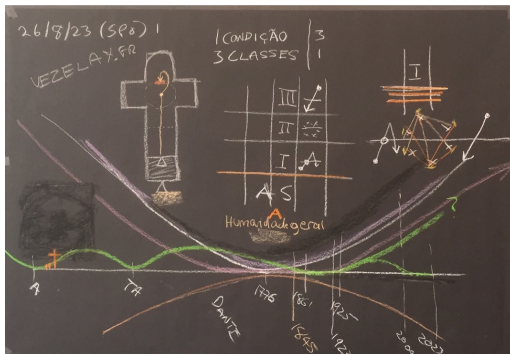 26/8/23 (SPO) 1
VEZELAY.FR
1 CONDIÇÃO 3
3 CLASSES 1
I
III
II
I
A S
A
Humanidade geral
?
A
TA
DANTE
1776
1861
1845
1925
2000
2023